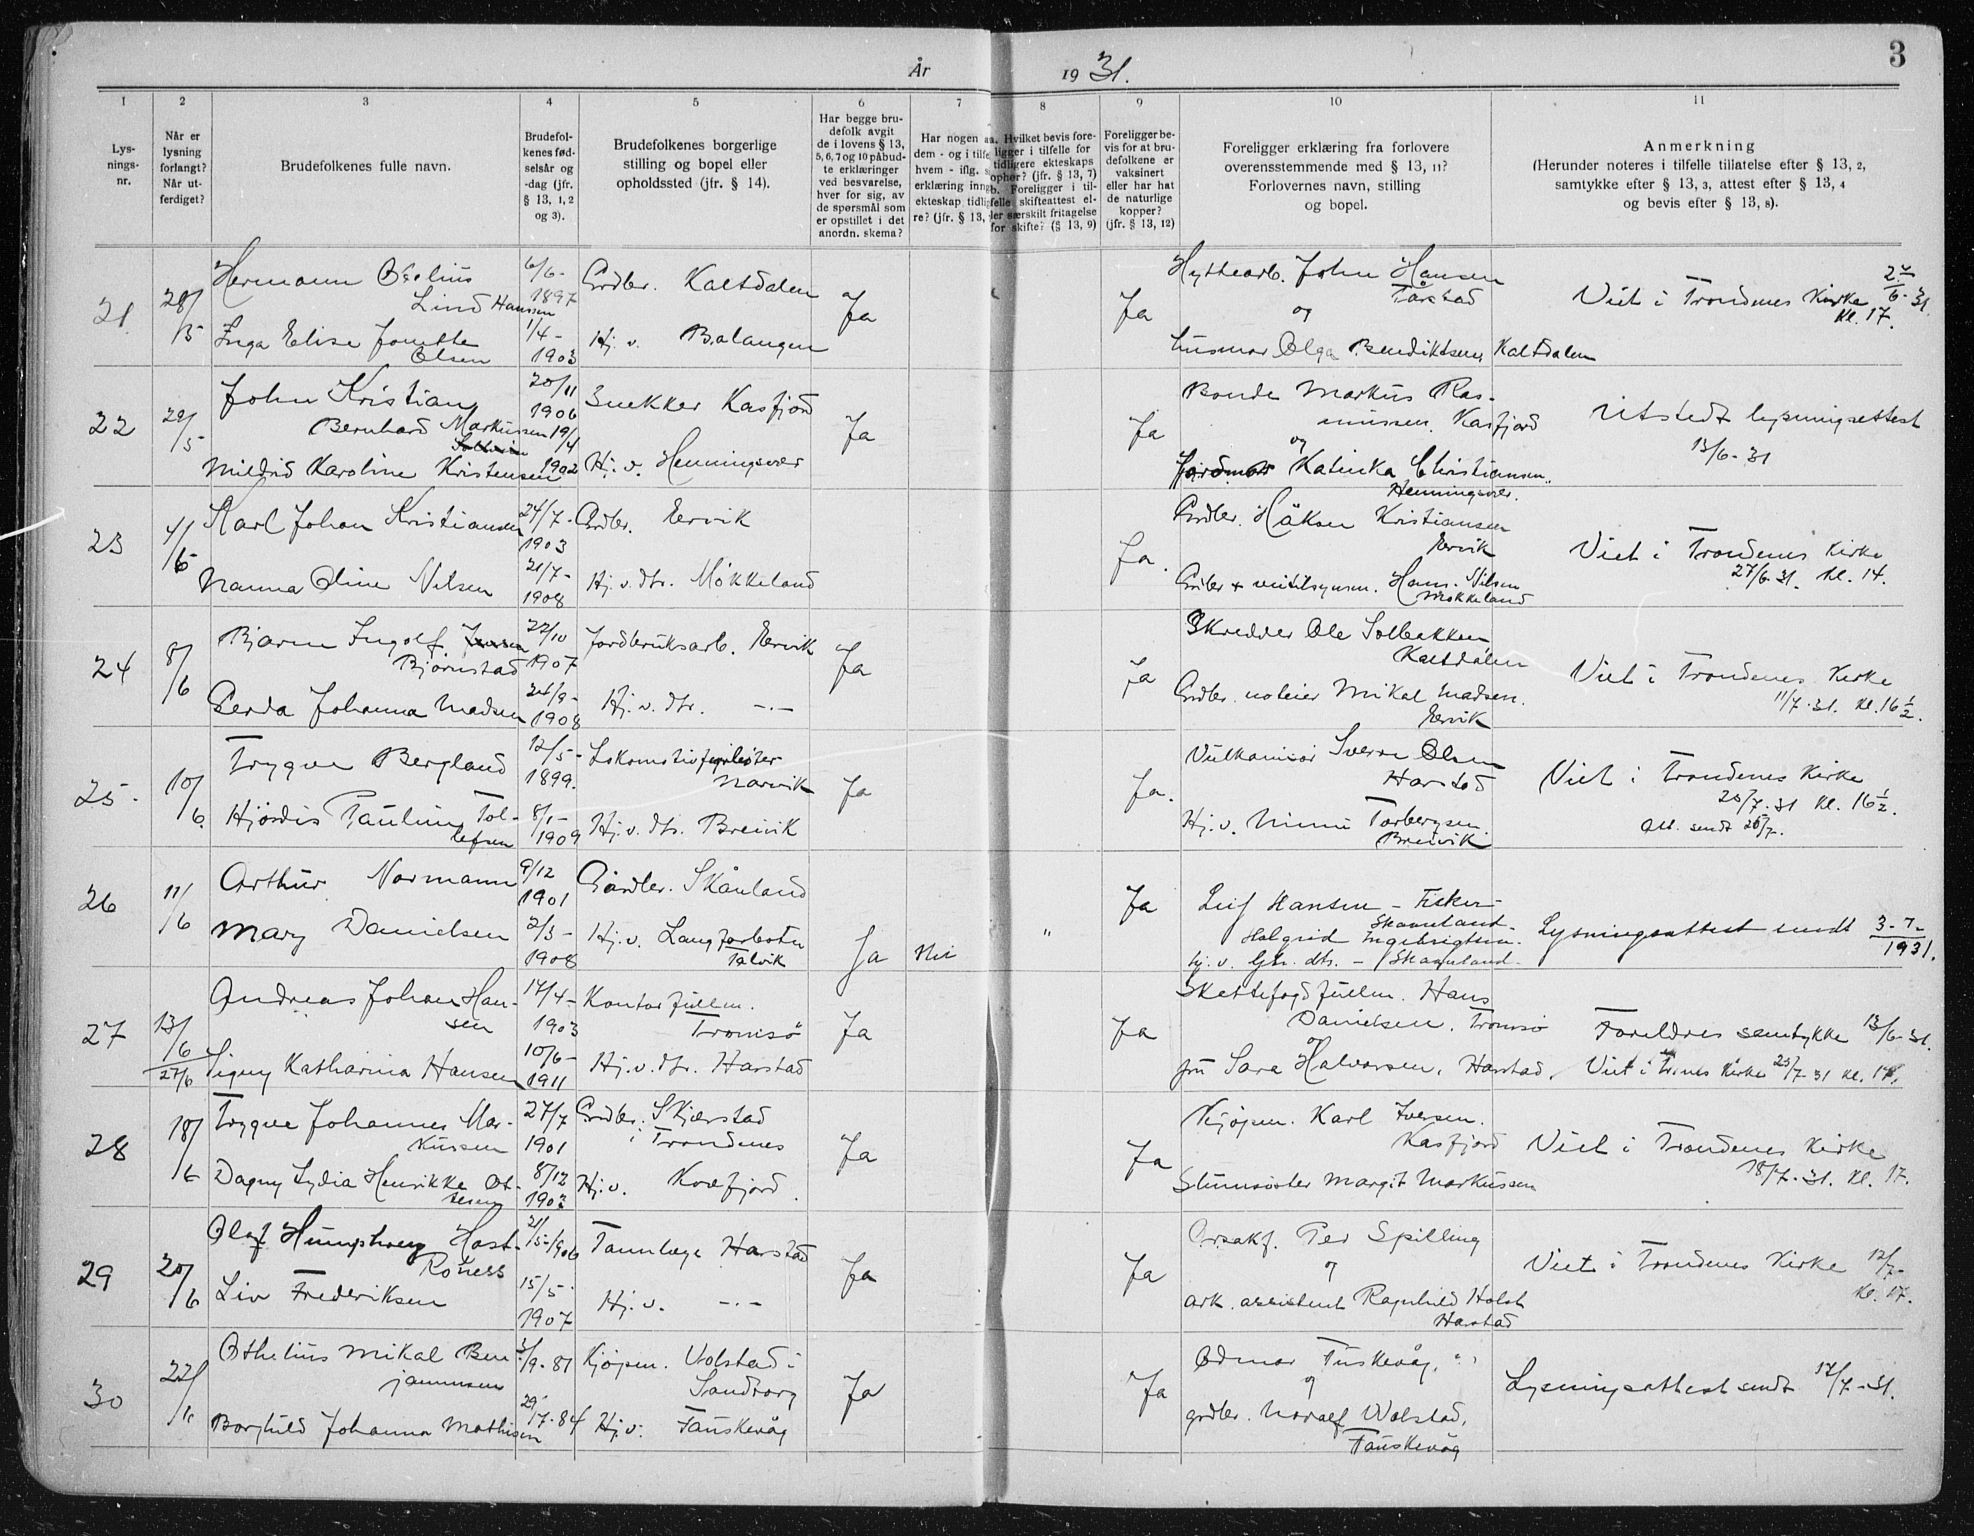 3
År 1931.
1 2 3 4 5 6 7 8 9 10 11
Lys-
nings-
nr.
Når er
lysning
forlangt?
Når ut-
ferdiget?
Brudefolkenes fulle navn.
Brudefol-
kenes fød-
selsår og
-dag (jfr.
§ 13, 1, 2
og 3).
Brudefolkenes borgerlige
stilling og bopel eller
opholdssted (jfr. § 14).
Har begge bru-
defolk avgit
de i lovens § 13,
5, 6, 7 og 10 påbud-
te erklæringer
ved besvarelse,
hver for sig, av
de spørsmål som
er opstillet i det
anordn. skema?
Har nogen a
dem - og i tilfe
hvem - iflg. s
erklæring inng
ekteskap tidlig
re? (jfr. § 13,
a. Hvilket bevis fore-
ligger i tilfelle for
tidligere ekteskaps
ophør? (jfr. § 13, 7)
b. Foreligger i til-
felle skifteattest el-
ler særskilt fritagelse
for skifte? (§ 13, 9)
Foreligger be-
vis for at bru-
defolkene er
vaksinert
eller har hat
de naturlige
kopper?
(jfr. § 13, 12)
Foreligger erklæring fra forlovere
overensstemmende med § 13, 11?
Forlovernes navn, stilling
og bopel.
Anmerkning
(Herunder noteres i tilfelle tillatelse efter § 13, 2,
samtykke efter § 13, 3, attest efter § 13, 4
og bevis efter § 13, 8).
21 28/5
Hermann Lind Hanssen
6/6-1897
Grdbr. Kaltdalen
Ja
Ja
Hyttearb. John Hansen
Tårstad
og
husmor Olga Bendiktsen, Kaltdalen
Viet i Trondenes Kirke 27/6-31.
Kl. 17.
Inga Elise Jonette
Olsen
1/4-1903
Hj. v. Balangen
22 29/5
John Kristian
Bernhard Markussen
20/11 1906
Snekker Kasfjord
Ja
Ja
Bonde Markus Ras-
mussen, Kasfjord
og
Jordmor Katinka Christiansen,
Henningsvær.
Utstedt lysningsattest
13/6-31
Mildrid Karoline Kristensen
19/4 1902
Hj. v. Henningsvær
23 4/6
Karl Johan Kristiansen
24/7-1903
Grdbr. Ervik
Ja.
Grdbr. Håkon Kristiansen
Ervik
Grdbr. & veitilsynsm. Hans Nilsen
Møkkeland
Viet i Trondenes Kirke
27/6 31. Kl. 14.
Nanna Oline Nilsen
21/7-1908
Hj. v. dtr. Møkkeland
24 8/6
Bjarne Ingolf Jensen
Bjørnstad
22/10 1907
Jordbruksarb. Ervik
Ja
Ja
Skredder Ole Solbakken
Kaltdalen
Grdbr. noteier Mikal Madsen.
Ervik
Viet i Trondenes Kirke
11/7-31. Kl. 16 1/2.
Gerda Johanna Madsen
24/9-1908
Hj. v. dtr. -.-
25. 10/6.
Trygve Bergland
12/5-1899.
Narvik
Ja
Ja.
Vulkanisør Sverre Olsen
Harstad
Hj. v. Minni Torbergsen
Breivik
Viet i Trondenes Kirke
25/7-31 Kl. 16 1/2.
Att. sendt 25/7.
Hjørdis Pauline Tol-
lefsen
8/1-1909
Hj. v. dtr. Breivik
26 11/6
Arthur Normann
9/12 1901
Gårdbr. Skånland
Ja
Leif Hansen - Fisker -
Skaanland.
Halgrid Ingebrigtsen.
hj. v. Gbr. dtr. - Skaanland.
Lysningsattest sendt 3-7-1931.
Mary Danielsen
2/3-1908
Hj. v. Langfjorbotn
Talvik
Ja Nei "
27 13/6 27/6
Andreas Johan Han-
sen
17/4-1903
Kontorfullm.
Tromsø
Ja
Ja
Skattefogdfullm. Hans
Danielsen, Tromsø
og
fru Sara Halvorsen, Harstad.
Foreldres samtykke 13/6-31.
Viet i Tr.nes Kirke 25/7-31 Kl. 17.
Signy Katharina Hansen
10/6-1911
Hj. v. dtr. Harstad
28 18/6
Trygve Johannes Mar-
kussen
27/7 1901
Grdbr. Skjærstad
i Trondenes
Ja
Ja
Kjøpm. Karl Iversen.
Kasfjord
Margit Markussen
Viet i Trondenes Kirke
18/7-31. Kl. 17.
Dagny Lydia Henrikke Ot-
tesen
8/12 1903
Hj. v. Kvæfjord.
29 20/6
Olaf Humphrey Hast-
Roness
21/5-1906
Tannlæge Harstad
Ja
Ja
Orsakf. Per Spilling
og
ark. assistent Ragnhild Holst
Harstad
Viet i Trondenes Kirke 12/7-
Kl. 17.
Liv Frederiksen
15/5-1907
Hj. v. -.-
30 22/6
Othelius Mikal Ben-
jaminsen
3/9-81
Kjøpm. Volstad i
Sandtorg
Ja
Ja
Odmar Fuskevåg, "
og
grdbr. Noralf Wolstad,
Fauskevåg
Lysningsattest sendt 12/7-31.
Borghild Johanna Mathisen
29/7-84
Hj. v. Fauskevåg